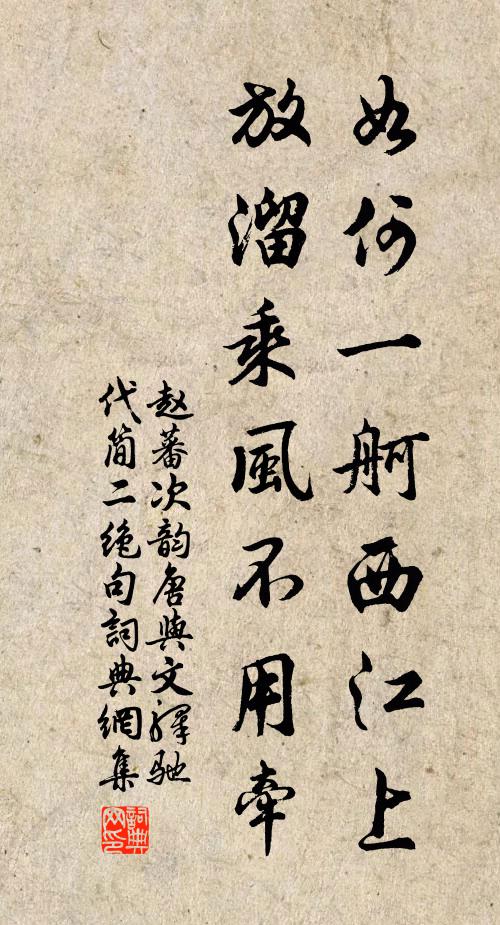 如何一舸西江上
放溜乘風不用牽
赵蕃次韵唐與文驛馳
代简二絶句詞典網集
詞典
网印